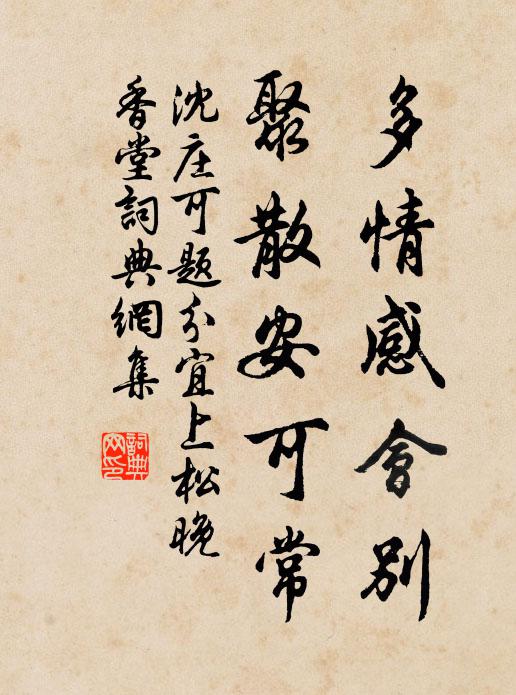 多情感會別
聚散安可常
沈庄可题分宜上松晚
香堂詞典網集
詞典网印